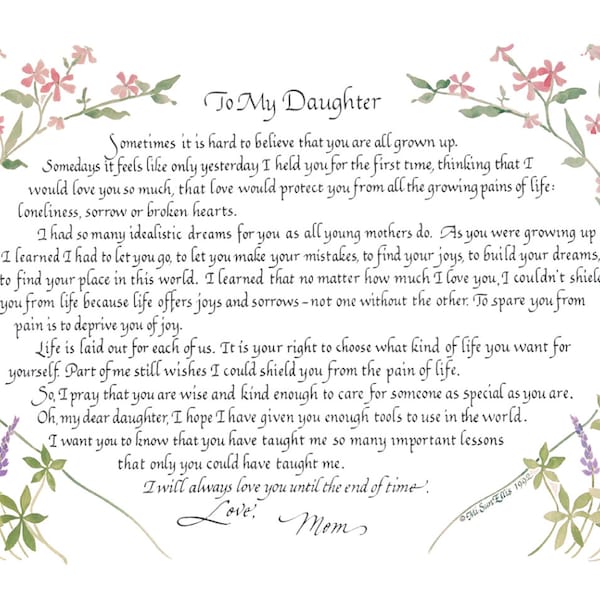 To My Daughter
Sometimes it is hard to believe that you are all grown up.
Somedays it feels like only yesterday I held you for the first time, thinking that I
would love you so much, that love would protect you from all the growing pains of life:
loneliness, sorrow or broken hearts.
I had so many idealistic dreams for you as all young mothers do. As you were growing up
I learned I had to let you go, to let you make your mistakes, to find your joys, to build your dreams,
to find your place in this world. I learned that no matter how much I love you, I couldn't shiel
you from life because life offers joys and sorrows - not one without the other. To spare you from
pain is to deprive you of joy.
Life is laid out for each of us. It is your right to choose what kind of life you want for
yourself. Part of me still wishes I could shield you from the pain of life.
So, I pray that you are wise and kind enough to care for someone as special as you are.
Oh, my dear daughter, I hope I have given you enough tools to use in the world.
I want you to know that you have taught me so many important lessons
that only you could have taught me.
I will always love you until the end of time.
Love,
Mom
© Mi Sun Ellis 1992